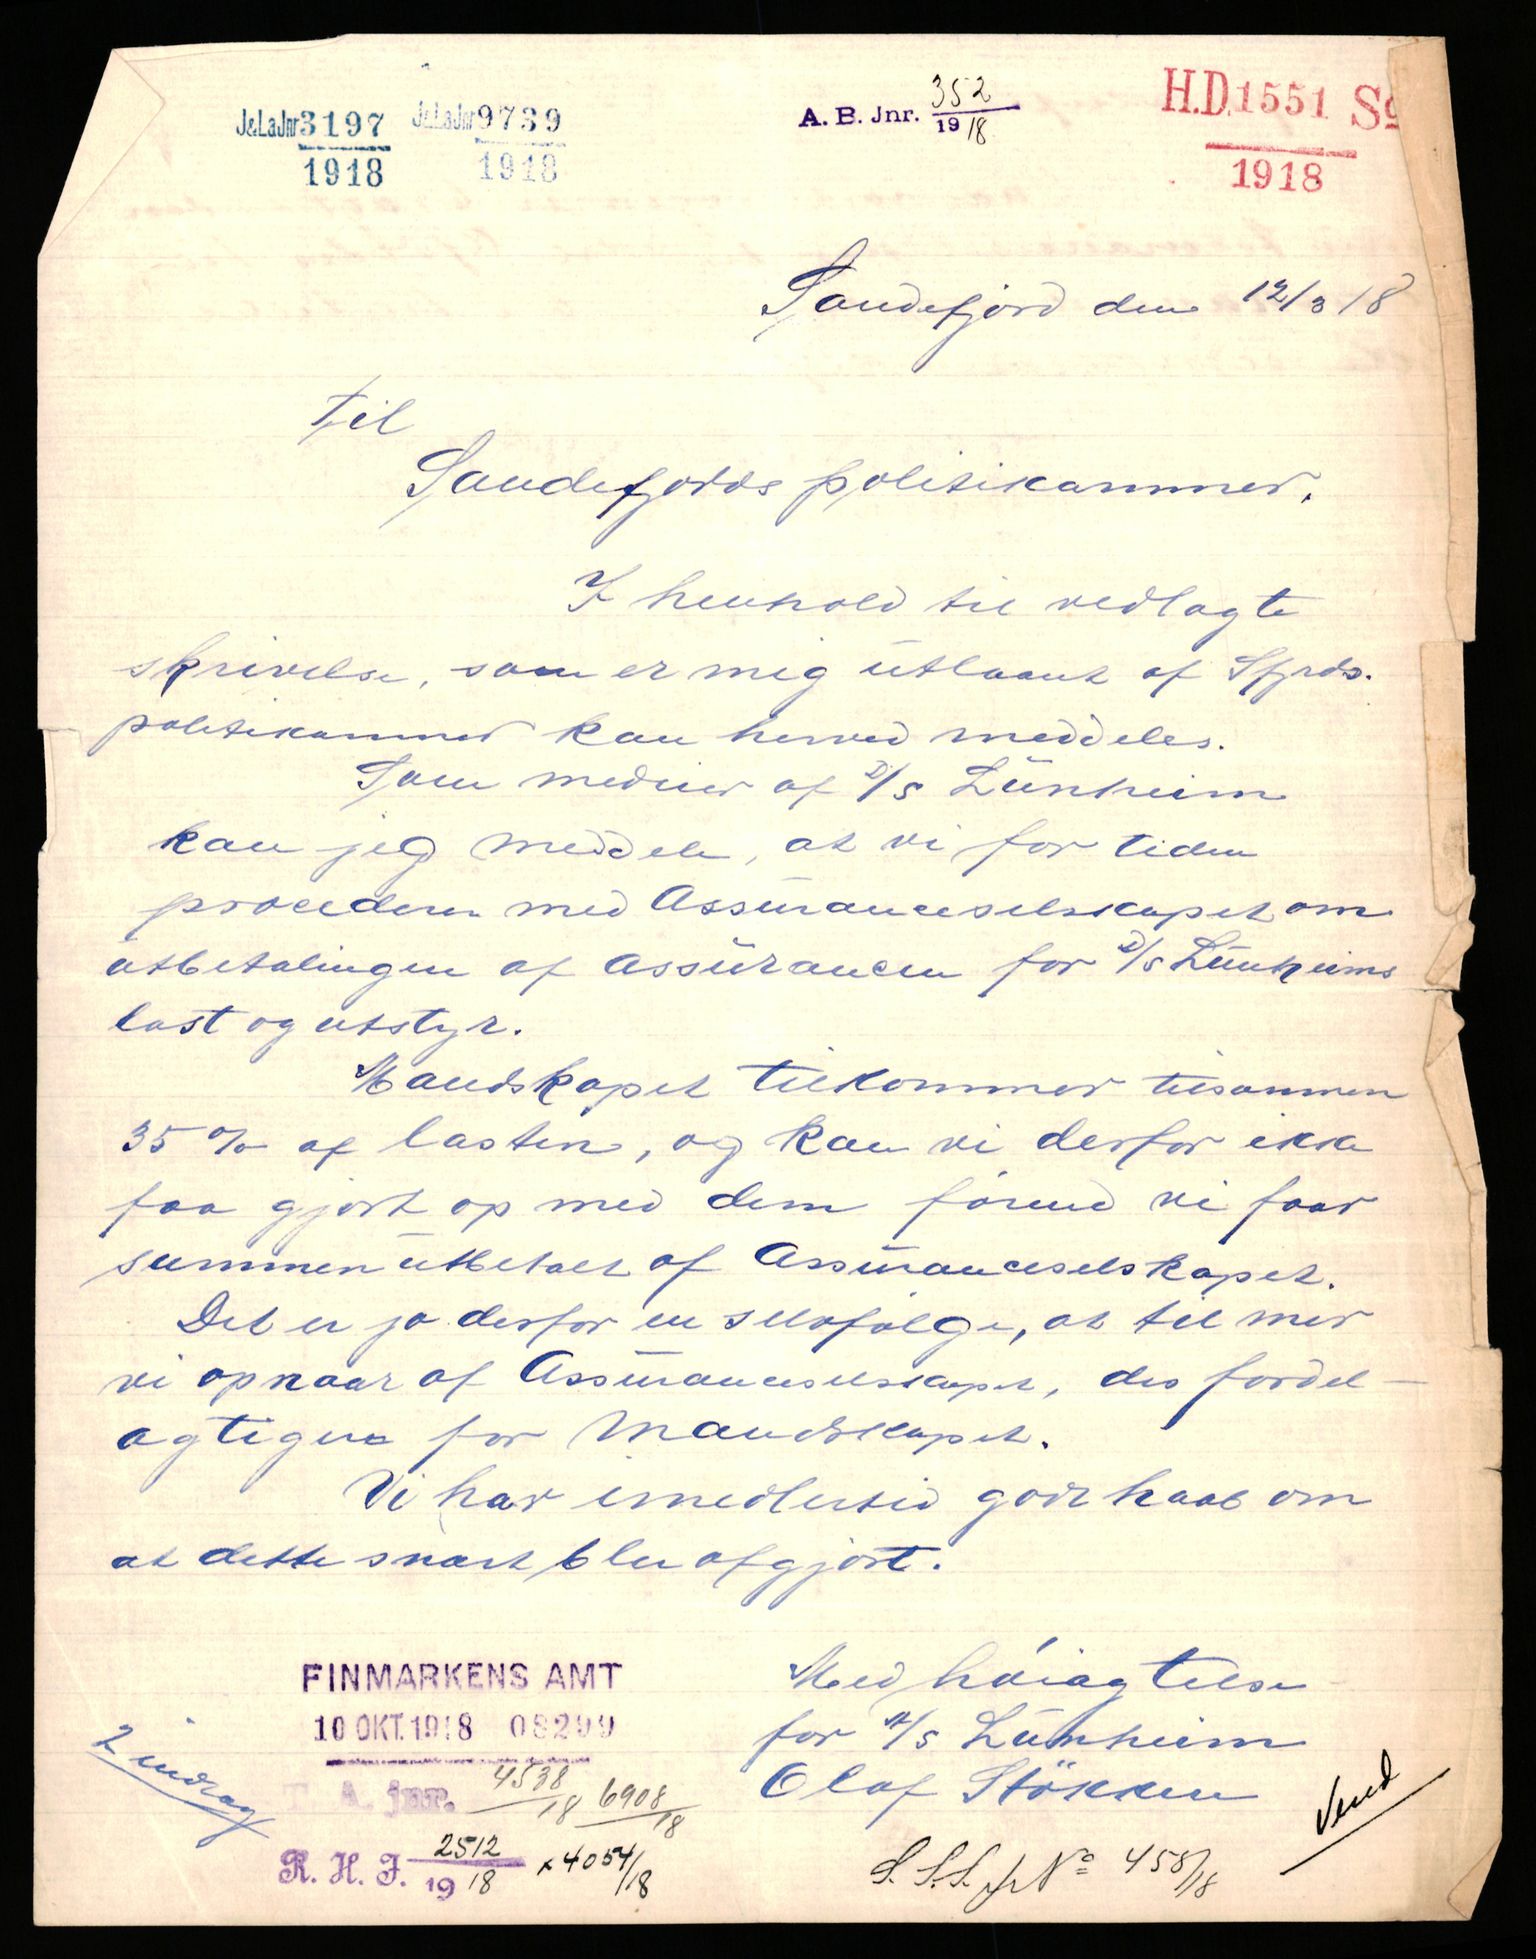 J&LaJnr 3197
1918
J&LaJnr 9739
1918
A. B. Jnr. 352
19 18
H.D. 1551 Sg
1918
Sandefjord den 12/3 18
Til
Sandefjords politikammer.
I henhold til vedlagte
skrivelse, som er mig utlaant af Sfjrds.
politikammer kan herved meddeles.
Som medeier af D/S Lünheim
kan jeg meddele, at vi for tiden
procederer med Assuranceselskapet om
utbetalingen af assurancen for D/S Lünheims
last og utstyr.
Mandskapet tilkommer tilsammen
35 % af lasten, og kan vi derfor ikke
faa gjort op med dem förend vi faar
summen utbetalt af Assuranceselskapet.
Det er jo derfor en selvfölge, at til mer
vi opnaar af Assuranceselskapet, des fordel-
agtigere for Mandskapet.
Vi har imedlertid godt haab om
at dette snart blir afgjort.
Med höiagtelse
for A/S Lünheim
Olaf Stökken
FINMARKENS AMT
10 OKT. 1918 08299
T. A. jnr. 4538/18 6908/18
R. H. J. 2512/1918 x 4054/18
2 indrag
S. S. S. jr No 458/18
Vend